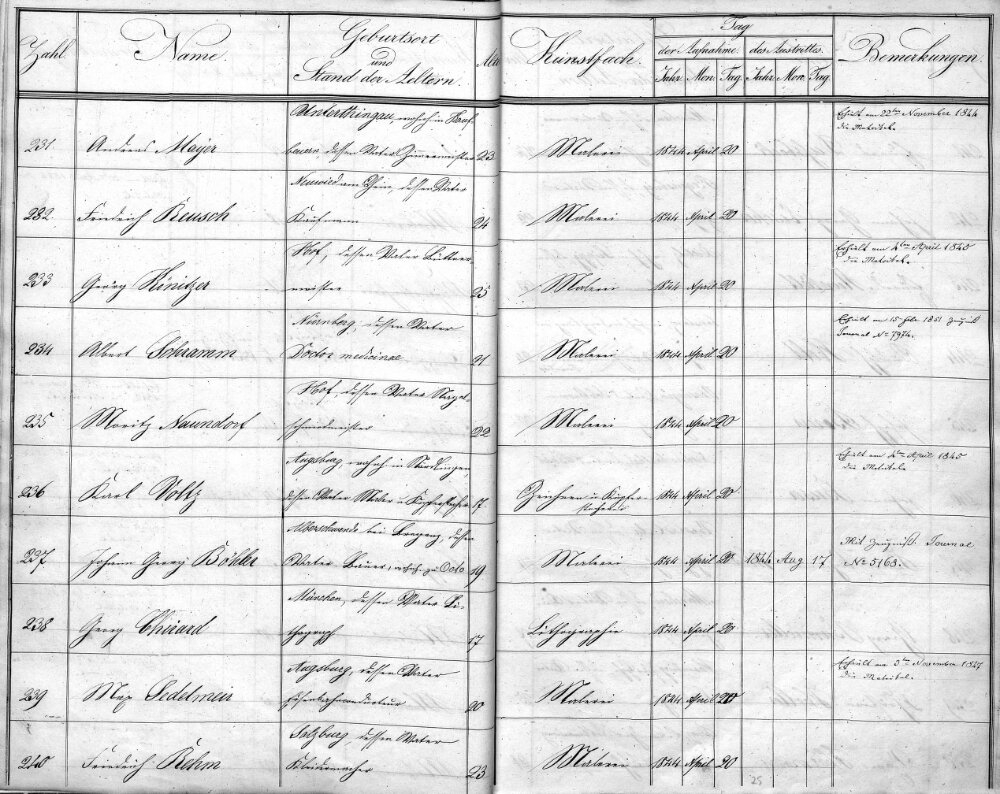 Zahl Name Geburtsort und Stand der Aeltern. Alter Kunstfach. Tag Bemerkungen.
der Aufnahme. des Austrittes.
Jahr Mon. Tag Jahr Mon. Tag
Unterthingau, wohnh. in Kauf- Erhielt am 22ten November 1844
231 Andreas Mayer beuern, dessen Vater Zimmermeister 23 Malerei 1844 April 20 die Matrikel.
Neuwied am Rhein, dessen Vater
232 Friedrich Reusch Kaufmann 24 Malerei 1844 April 20
Hof, dessen Vater Erhielt am 4ten April 1845
233 Georg Könitzer meister 25 Malerei 1844 April 20 die Matrikel.
Nürnberg, dessen Vater Erhielt am 15 Febr. 1851 Zeugniß
234 Albert Schramm Doctor medicinae 21 Malerei 1844 April 20 Journal No 7974.
Hof, dessen Vater Nagel-
235 Moritz Naundorf schmiedmeister 22 Malerei 1844 April 20
Augsburg, wohnh. in Nördlingen Erhielt am 4ten April 1845
236 Karl Voltz dessen Vater Maler u. Kupferstecher 17 Zeichner u. Kupfer- 1844 April 20 die Matrikel.
stecher
Alberschwende bei Bregenz, dessen
237 Johann Georg Böhler Vater Bauer, wohnh. zu 19 Malerei 1844 April 20 1844 Aug 17 Mit Zeugniß. Journal
No 5163.
München, dessen Vater Li-
238 Georg Cherard thograph 17 Lithographie 1844 April 20
Augsburg, dessen Vater Erhielt am 3ten November 1847
239 Max Sedelmeir Eisenbahnconducteur 20 Malerei 1844 April 20 die Matrikel.
Salzburg, dessen Vater
240 Friedrich Rehm Kleidermacher 23 Malerei 1844 April 20
25